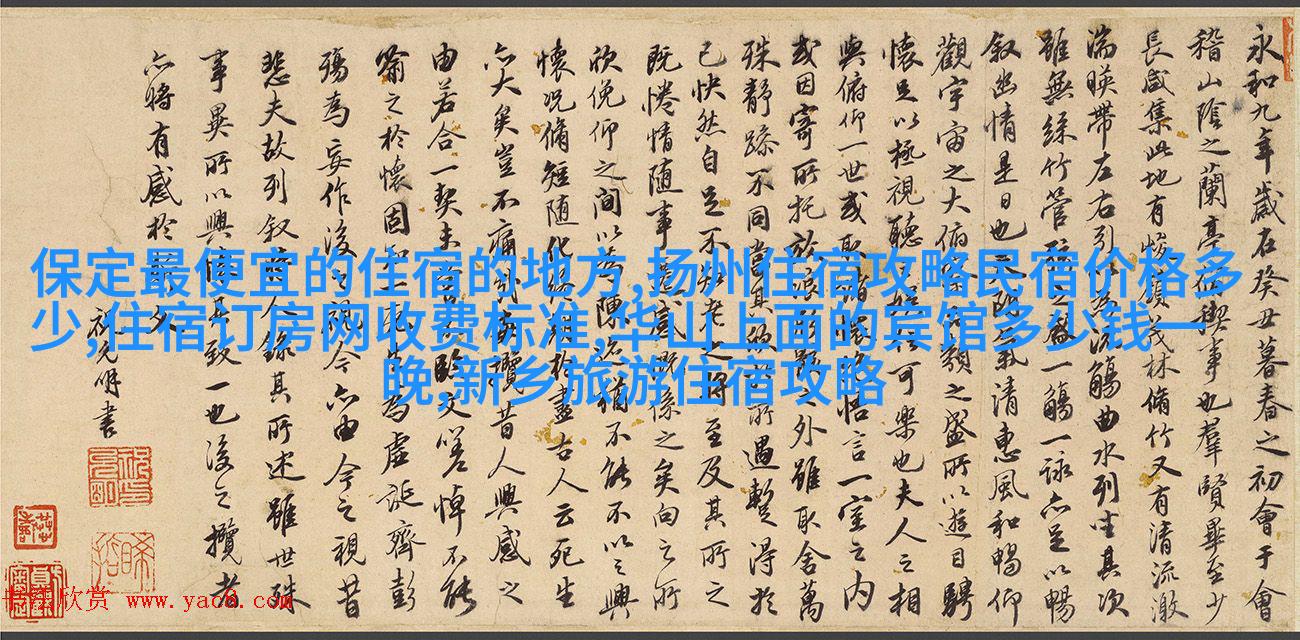 保定最便宜的住宿的地方,扬州住宿攻略民宿价格多
少,住宿订房网收费标准,华山上面的宾馆多少钱一
晚,新乡旅游住宿攻略
永和九年歲在癸丑暮春之初會于會
稽山陰之蘭亭修禊事也羣賢畢至少
長咸集此地有峻嶺茂林脩竹又有清流激
湍暎帶左右引以為流觴曲水列坐其次
雖無絲竹管之盛一觴一詠亦足以暢
叙幽情是日也天朗氣清惠風和暢仰
觀宇宙之大俯類之盛所以遊目騁
懷足以極視聽之娛信可樂也夫人之相
與俯仰一世或取諸懷抱悟言一室之內
或因寄所托放浪形骸之外雖取舍萬
殊靜躁不同當其欣於所遇暫得於
己快然自足不知老之將至及其所之
既惓情隨事遷感慨係之矣向之所
欣俛仰之間以為陳迹猶不能不以之興
懷況脩短隨化終期於盡古人云死生
亦大矣豈不痛哉攬昔人興感之
由若合一契未嘗不臨文嗟悼不能
喻之於懷固知一死生為虛誕齊彭
殤為妄作後之視今亦由今之視昔
悲夫故列叙時人錄其所述雖世殊
事異所以興懷其致一也後之攬者
亦將有感於斯文
祝允明書
欣赏 www.yac8.com